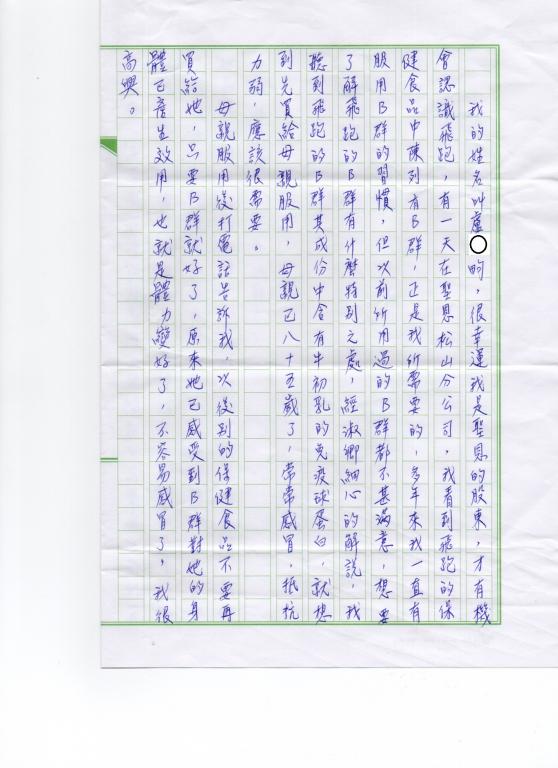 我的姓名叫盧○昀，很幸運我是聖恩的股東，才有機
會認識飛跑，有一天在聖恩松山分公司，我看到飛跑的保
健食品中陳列有B群，正是我所需要的，多年來我一直有
服用B群的習慣，但以前所用過的B群都不甚滿意，想要
了解飛跑的B群有什麼特別之處，經淑卿細心的解說，我
聽到飛跑的B群其成份中含有牛初乳的免疫球蛋白，就想
到先買給母親服用，母親已八十五歲了，常常感冒，抵抗
力弱，應該很需要。
母親服用後打電話告訴我，以後別的保健食品不要再
買給她，只要B群就好了，原來她已感受到B群對她的身
體已產生效用，也就是體力變好了，不容易感冒了，我很
高興。